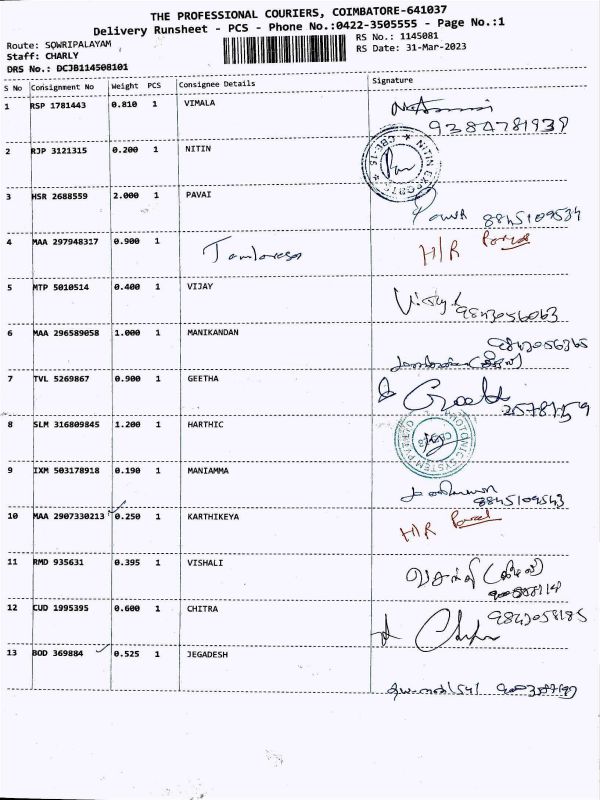 THE PROFESSIONAL COURIERS, COIMBATORE-641037
Delivery Runsheet - PCS - Phone No.:0422-3505555 - Page No.:1
Route: SOWRIPALAYAM
RS No.: 1145081
Staff: CHARLY
RS Date: 31-Mar-2023
DRS No.: DCJB114508101
S No Consignment No Weight PCS Consignee Details Signature
1 RSP 1781443 0.810 1 VIMALA
9384781939
2 RJP 3121315 0.200 1 NITIN
NITIN EXPORTS * CBE-15 *
3 HSR 2688559 2.000 1 PAVAI
8845109534
4 MAA 297948317 0.900 1 H/R
5 MTP 5010514 0.400 1 VIJAY
9843056063
6 MAA 296589058 1.000 1 MANIKANDAN
9842056365
7 TVL 5269867 0.900 1 GEETHA
Geetha
8 SLM 316809845 1.200 1 HARTHIC
9 IXM 503178918 0.190 1 MANIAMMA
8845109543
10 MAA 2907330213 0.250 1 KARTHIKEYA H/R
11 RMD 935631 0.395 1 VISHALI
12 CUD 1995395 0.600 1 CHITRA 9842058185
13 BOD 369884 0.525 1 JEGADESH